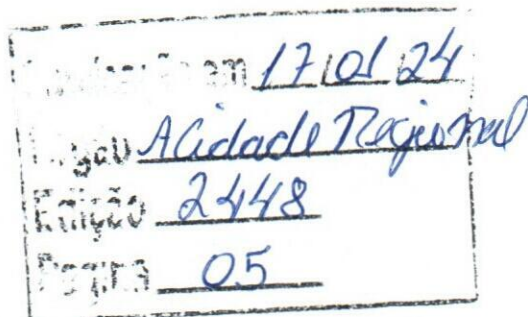 em 17/01/24
Órgão A Cidade Regional
Edição 2448
Pagina 05